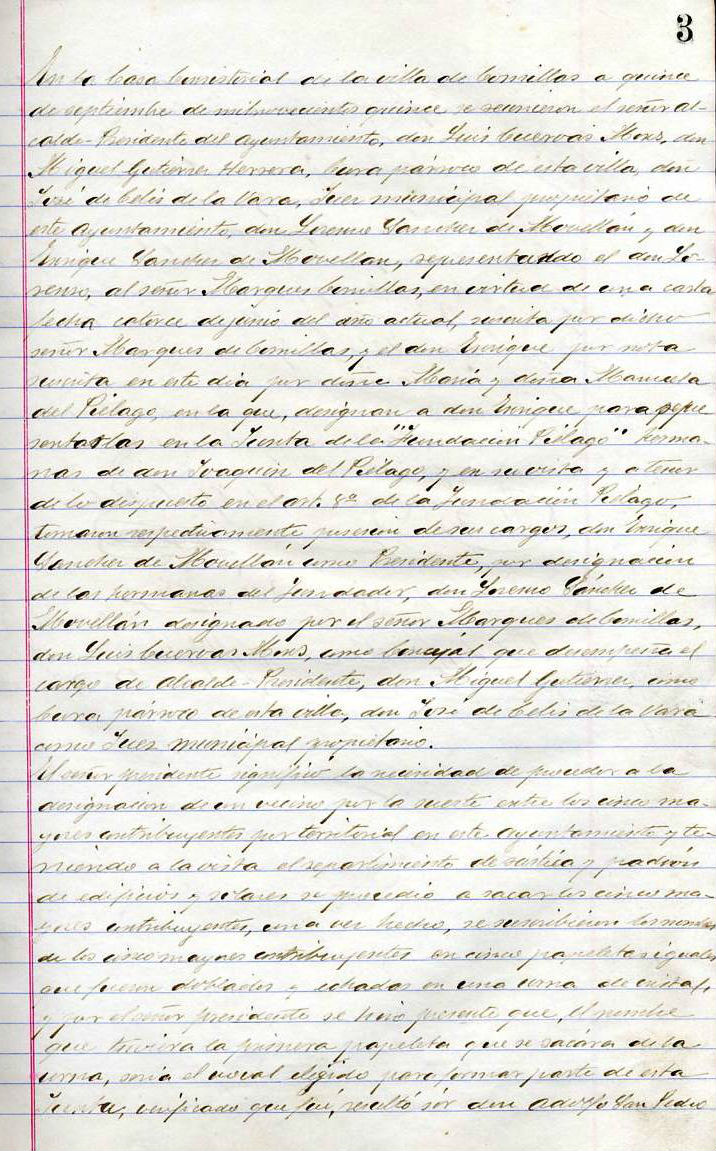 3
En la Casa Consistorial de la villa de Comillas a quince
de septiembre de mil novecientos quince se reunieron el señor al-
calde-Presidente del ayuntamiento, don Luis Cuervas Mons, don
Miguel Gutiérrez Herrera, Cura párroco de esta villa, don
José de Celis de la Vara, Juez municipal propietario de
este ayuntamiento, don Lorenzo Sanchez de Movellán y don
Enrique Sanchez de Movellan, representando el don Lo-
renzo, al señor Marques Comillas, en virtud de una carta
fecha catorce de junio del año actual, suscrita por dicho
señor Marques de Comillas, y el don Enrique por nota
suscrita en este dia por doña María y doña Manuela
del Piélago, en la que, designan a don Enrique para repre
sentarlas en la Junta de la "Fundación Piélago" herma-
nas de don Joaquín del Piélago, y en su vista y a tenor
de lo dispuesto en el art. 8º de la Fundación Pielago,
tomaron respectivamente posesion de sus cargos, don Enrique
Sanchez de Movellán como Presidente, por designación
de las hermanas del fundador, don Lorenzo Sánchez de
Movellán designado por el señor Marques de Comillas,
don Luis Cuervas Mons, como Concejal que desempeña el
cargo de Alcalde-Presidente, don Miguel Gutierrez, como
Cura párroco de esta villa, don José de Celis de la Vara
como Juez municipal propietario.
El señor presidente significó la necesidad de proceder a la
designación de un vecino por la suerte entre los cinco ma-
yores contribuyentes por territorial en este ayuntamiento y te-
niendo a la vista el repartimiento de rústica y padrón
de edificios y solares se procedio a sacar los cinco ma-
yores contribuyentes, una vez hecho, se suscribieron los nombres
de los cinco mayores contribuyentes en cinco papeletas iguales
que fueron doblados y echadas en una urna de cristal,
y por el señor presidente se hizo presente que, el nombre
que tuviera la primera papeleta que se sacára de la
urna, seria el vocal elegido para formar parte de esta
Junta, verificado que fué, resultó ser don Adolfo San Pedro